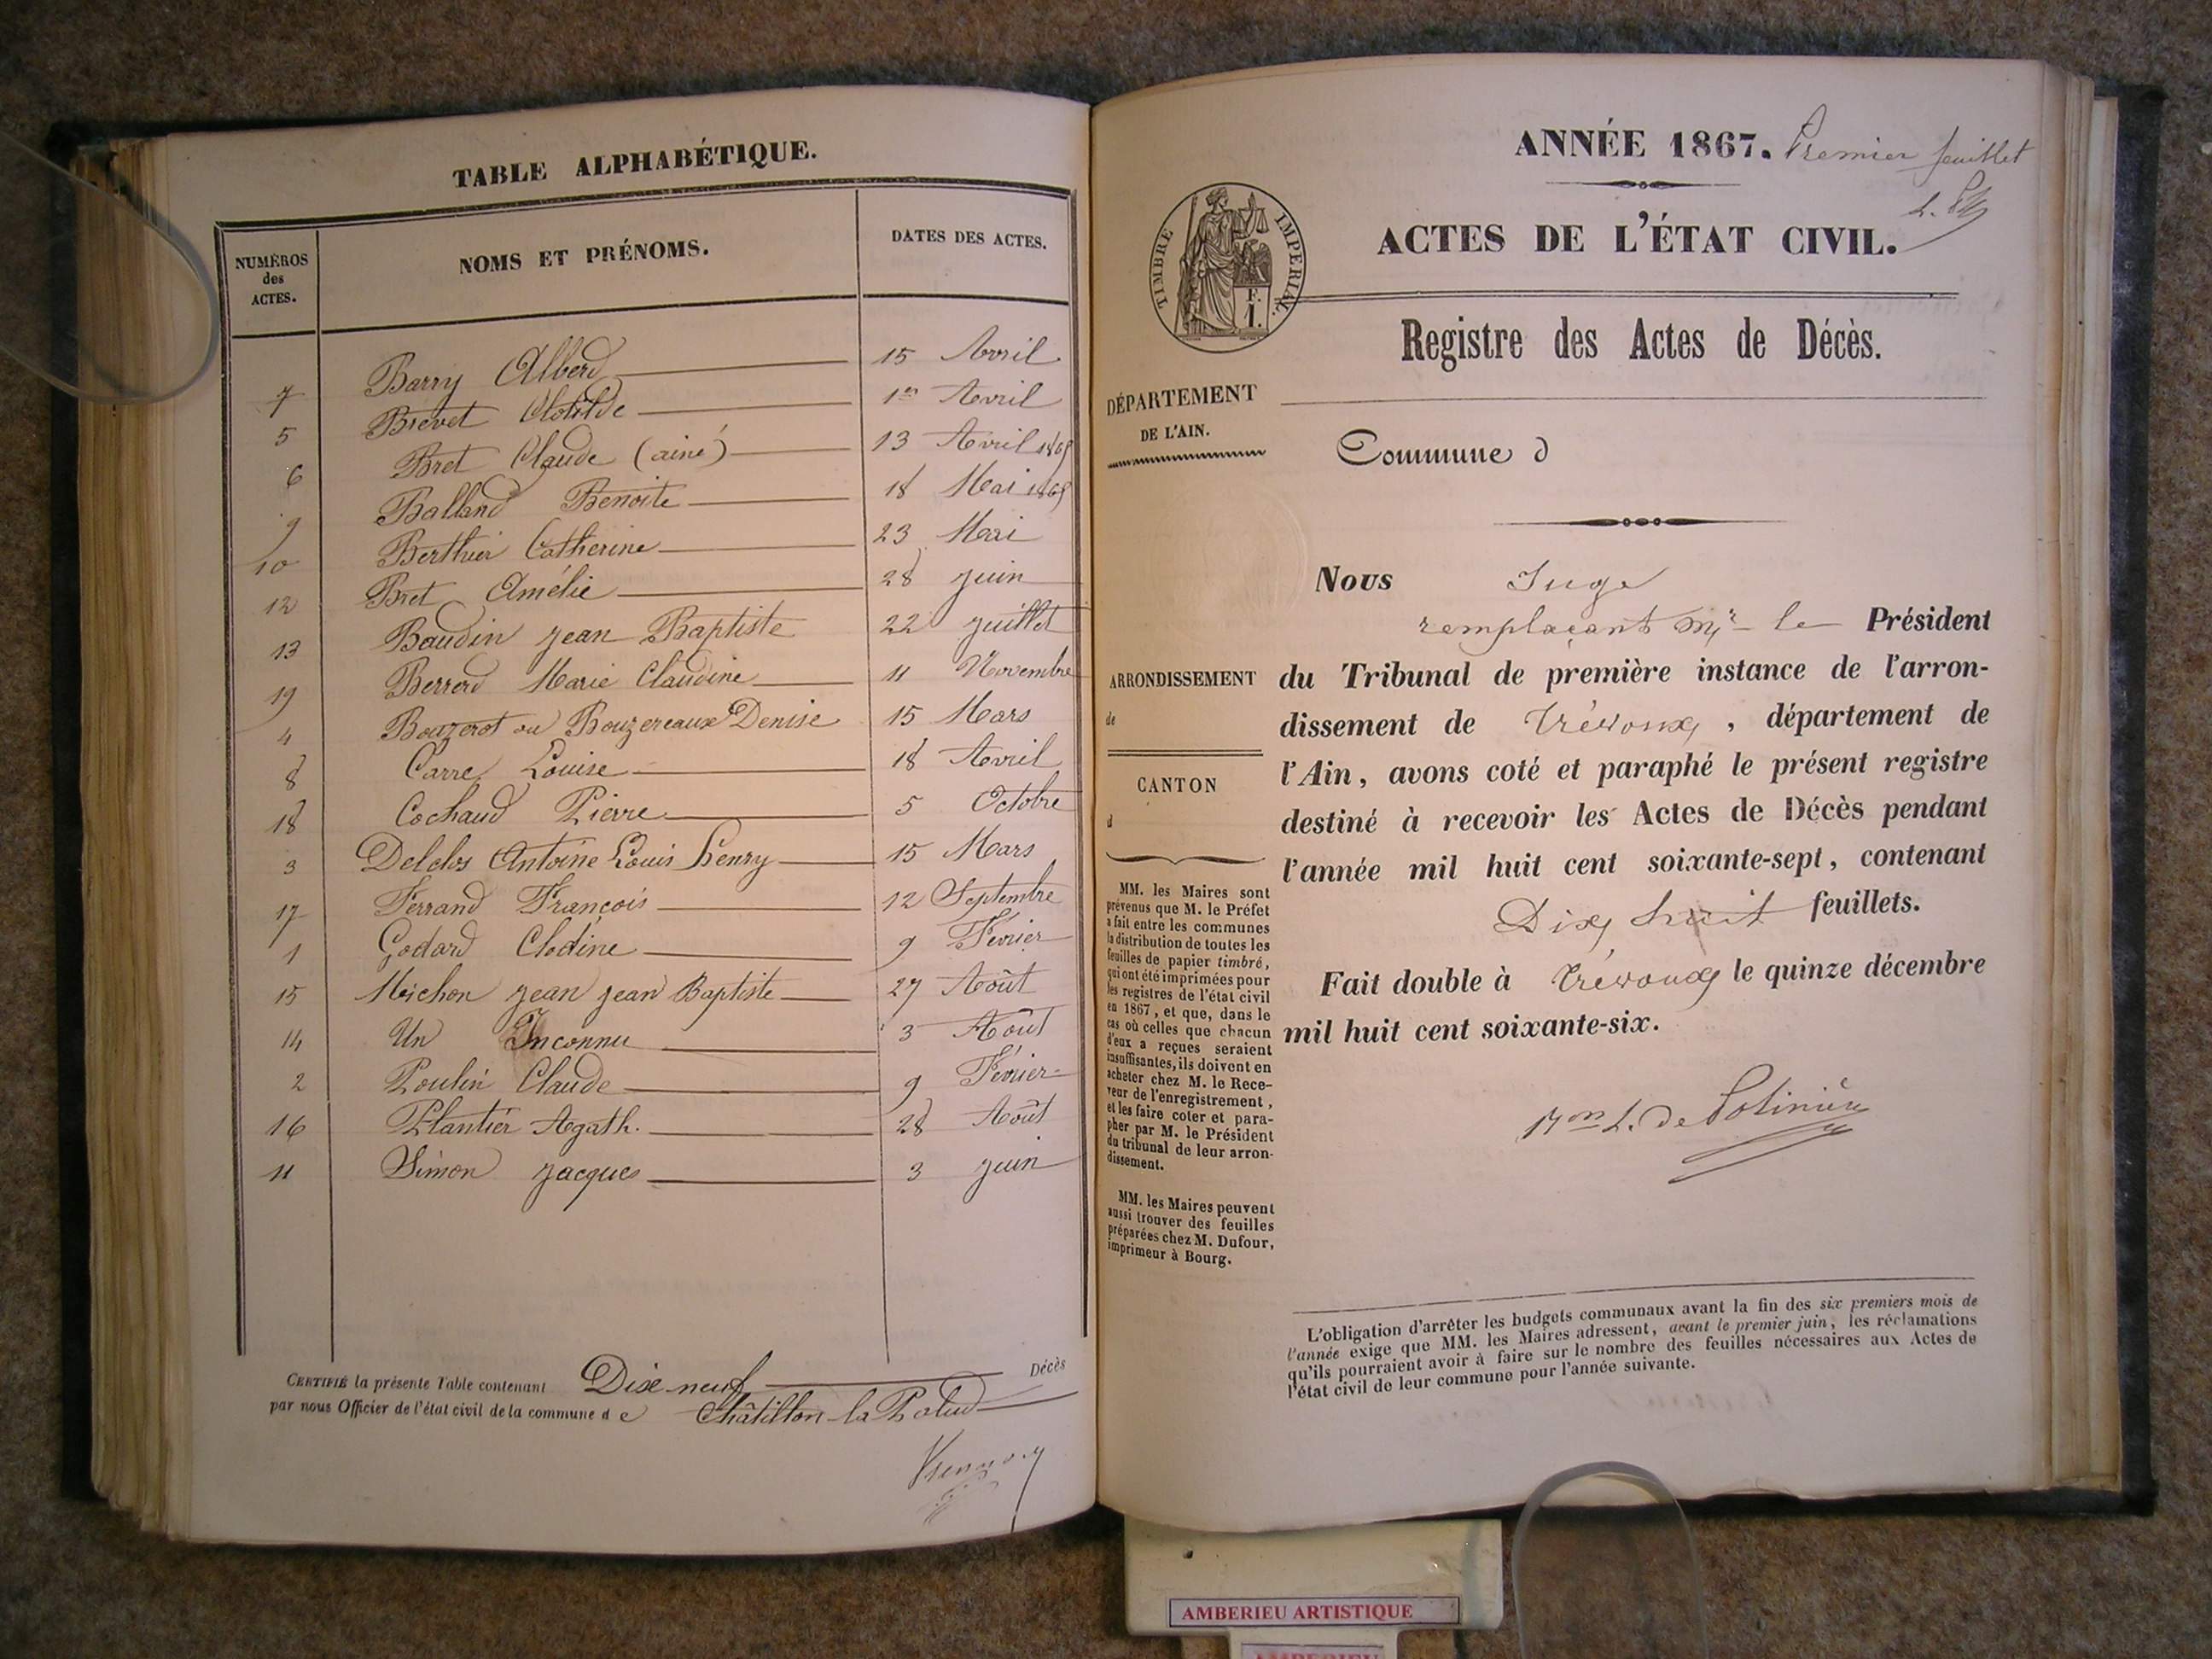 TABLE ALPHABÉTIQUE.
NUMÉROS des ACTES. NOMS ET PRÉNOMS. DATES DES ACTES.
7 Barry Alberd 15 Avril
5 Brevet Clotilde 1er Avril
6 Bret Claude (ainé) 13 Avril 1865
9 Balland Benoite 18 Mai 1865
10 Berthier Catherine 23 Mai
12 Bret Amélie 28 juin
13 Baudin jean Baptiste 22 juillet
19 Berrerd Marie Claudine 11 Novembre
4 Bouzerot ou Bouzereaux Denise 15 Mars
8 Carre Louise 18 Avril
18 Cochaud Pierre 5 Octobre
3 Delclos Antoine Louis henry 15 Mars
17 Ferrand François 12 Septembre
1 Godard Clodine 9 Févier
15 Michon jean jean Baptiste 27 Août
14 Un Inconnu 3 Août
2 Poulin Claude 9 Févier
16 Plantier Agath. 28 Août
11 Simon jacques 3 juin
CERTIFIÉ la présente Table contenant Dixe neuf Décès
par nous Officier de l'état civil de la commune de Châtillon-la-Palud
ANNÉE 1867. Premier feuillet
ACTES DE L'ÉTAT CIVIL.
TIMBRE IMPERIAL
F.
1.
Registre des Actes de Décès.
DÉPARTEMENT
DE L'AIN.
Commune d
ARRONDISSEMENT
de
CANTON
d
MM. les Maires sont
prévenus que M. le Préfet
a fait entre les communes
la distribution de toutes les
feuilles de papier timbré,
qui ont été imprimées pour
les registres de l'état civil
en 1867, et que, dans le
cas où celles que chacun
d'eux a reçues seraient
insuffisantes, ils doivent en
acheter chez M. le Rece-
veur de l'enregistrement,
et les faire coter et para-
pher par M. le Président
du tribunal de leur arron-
dissement.
MM. les Maires peuvent
aussi trouver des feuilles
préparées chez M. Dufour,
imprimeur à Bourg.
Nous Juge
remplaçant Mr le Président
du Tribunal de première instance de l'arron-
dissement de Trévoux, département de
l'Ain, avons coté et paraphé le présent registre
destiné à recevoir les Actes de Décès pendant
l'année mil huit cent soixante-sept, contenant
Dix huit feuillets.
Fait double à Trévoux le quinze décembre
mil huit cent soixante-six.
L'obligation d'arrêter les budgets communaux avant la fin des six premiers mois de
l'année exige que MM. les Maires adressent, avant le premier juin, les réclamations
qu'ils pourraient avoir à faire sur le nombre des feuilles nécessaires aux Actes de
l'état civil de leur commune pour l'année suivante.
AMBERIEU ARTISTIQUE
AMBERIEU